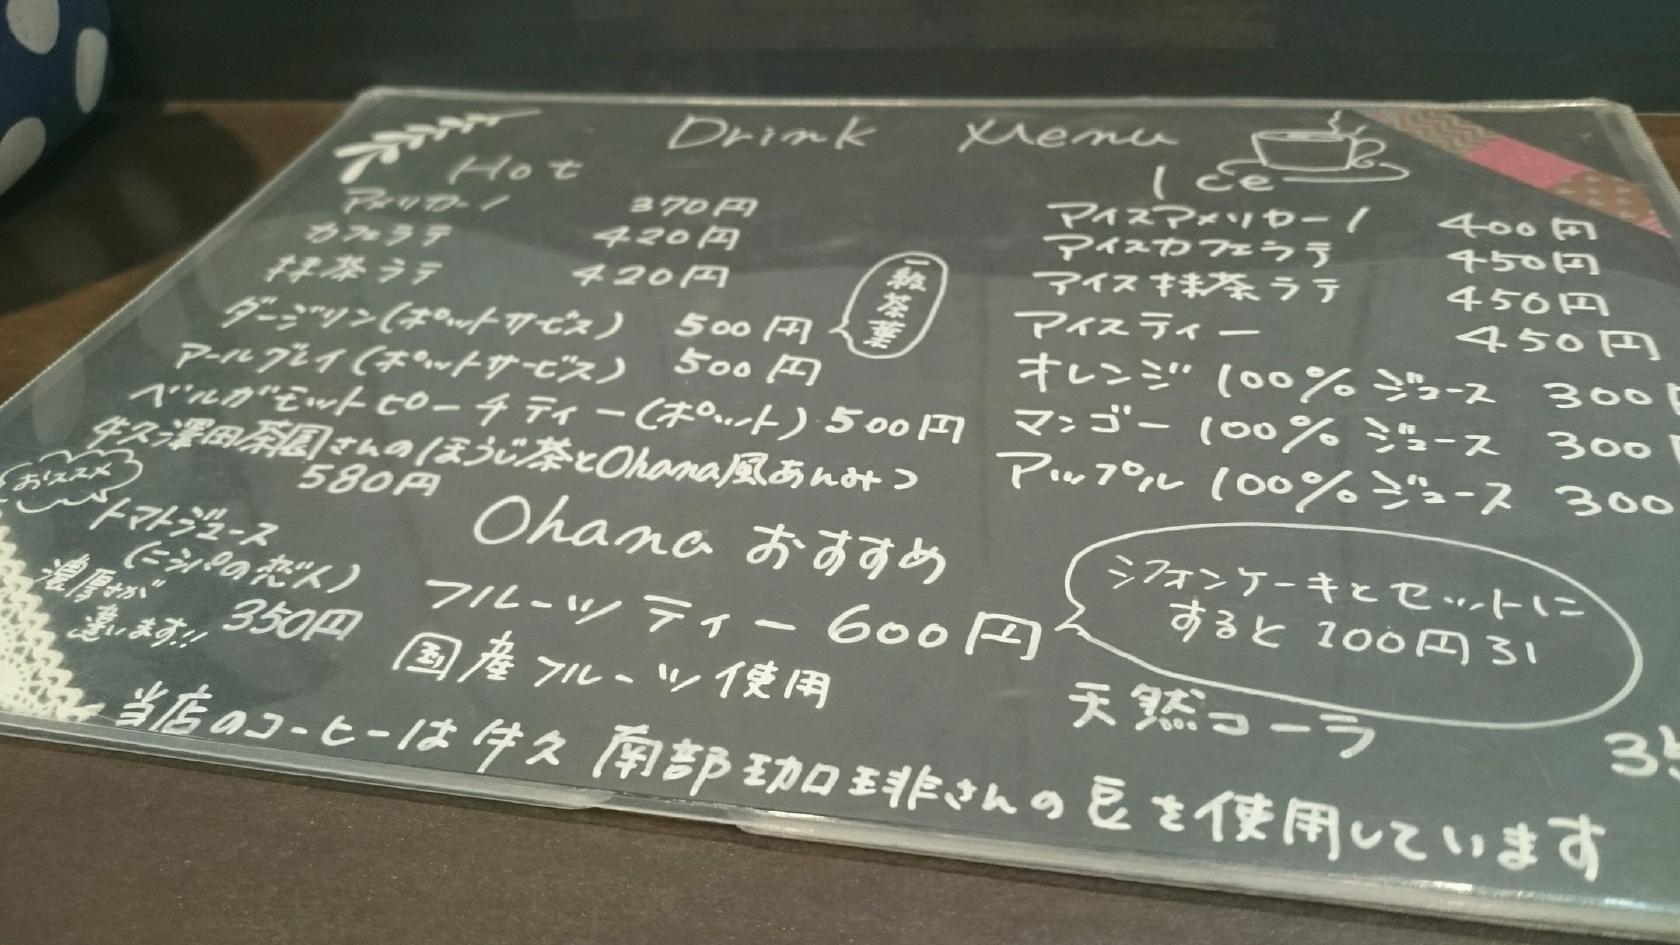 Drink Menu
Hot
アメリカーノ 370円
カフェラテ 420円
抹茶ラテ 420円
ダージリン(ポットサービス) 500円
一級茶葉
アールグレイ(ポットサービス) 500円
ベルガモットピーチティー(ポット) 500円
牛久澤田茶園さんのほうじ茶とOhana風あんみつ
580円
Ice
アイスアメリカーノ 400円
アイスカフェラテ 450円
アイス抹茶ラテ 450円
アイスティー 450円
オレンジ 100% ジュース 300
マンゴー 100% ジュース 300
アップル 100% ジュース 300
おススメ
トマトジュース
(ニシパの恋人)
濃厚さが
違います!!
350円
Ohana おすすめ
フルーツティー 600円
国産フルーツ使用
シフォンケーキとセットに
すると 100円引
天然コーラ 35
当店のコーヒーは牛久 南部珈琲さんの豆を使用しています